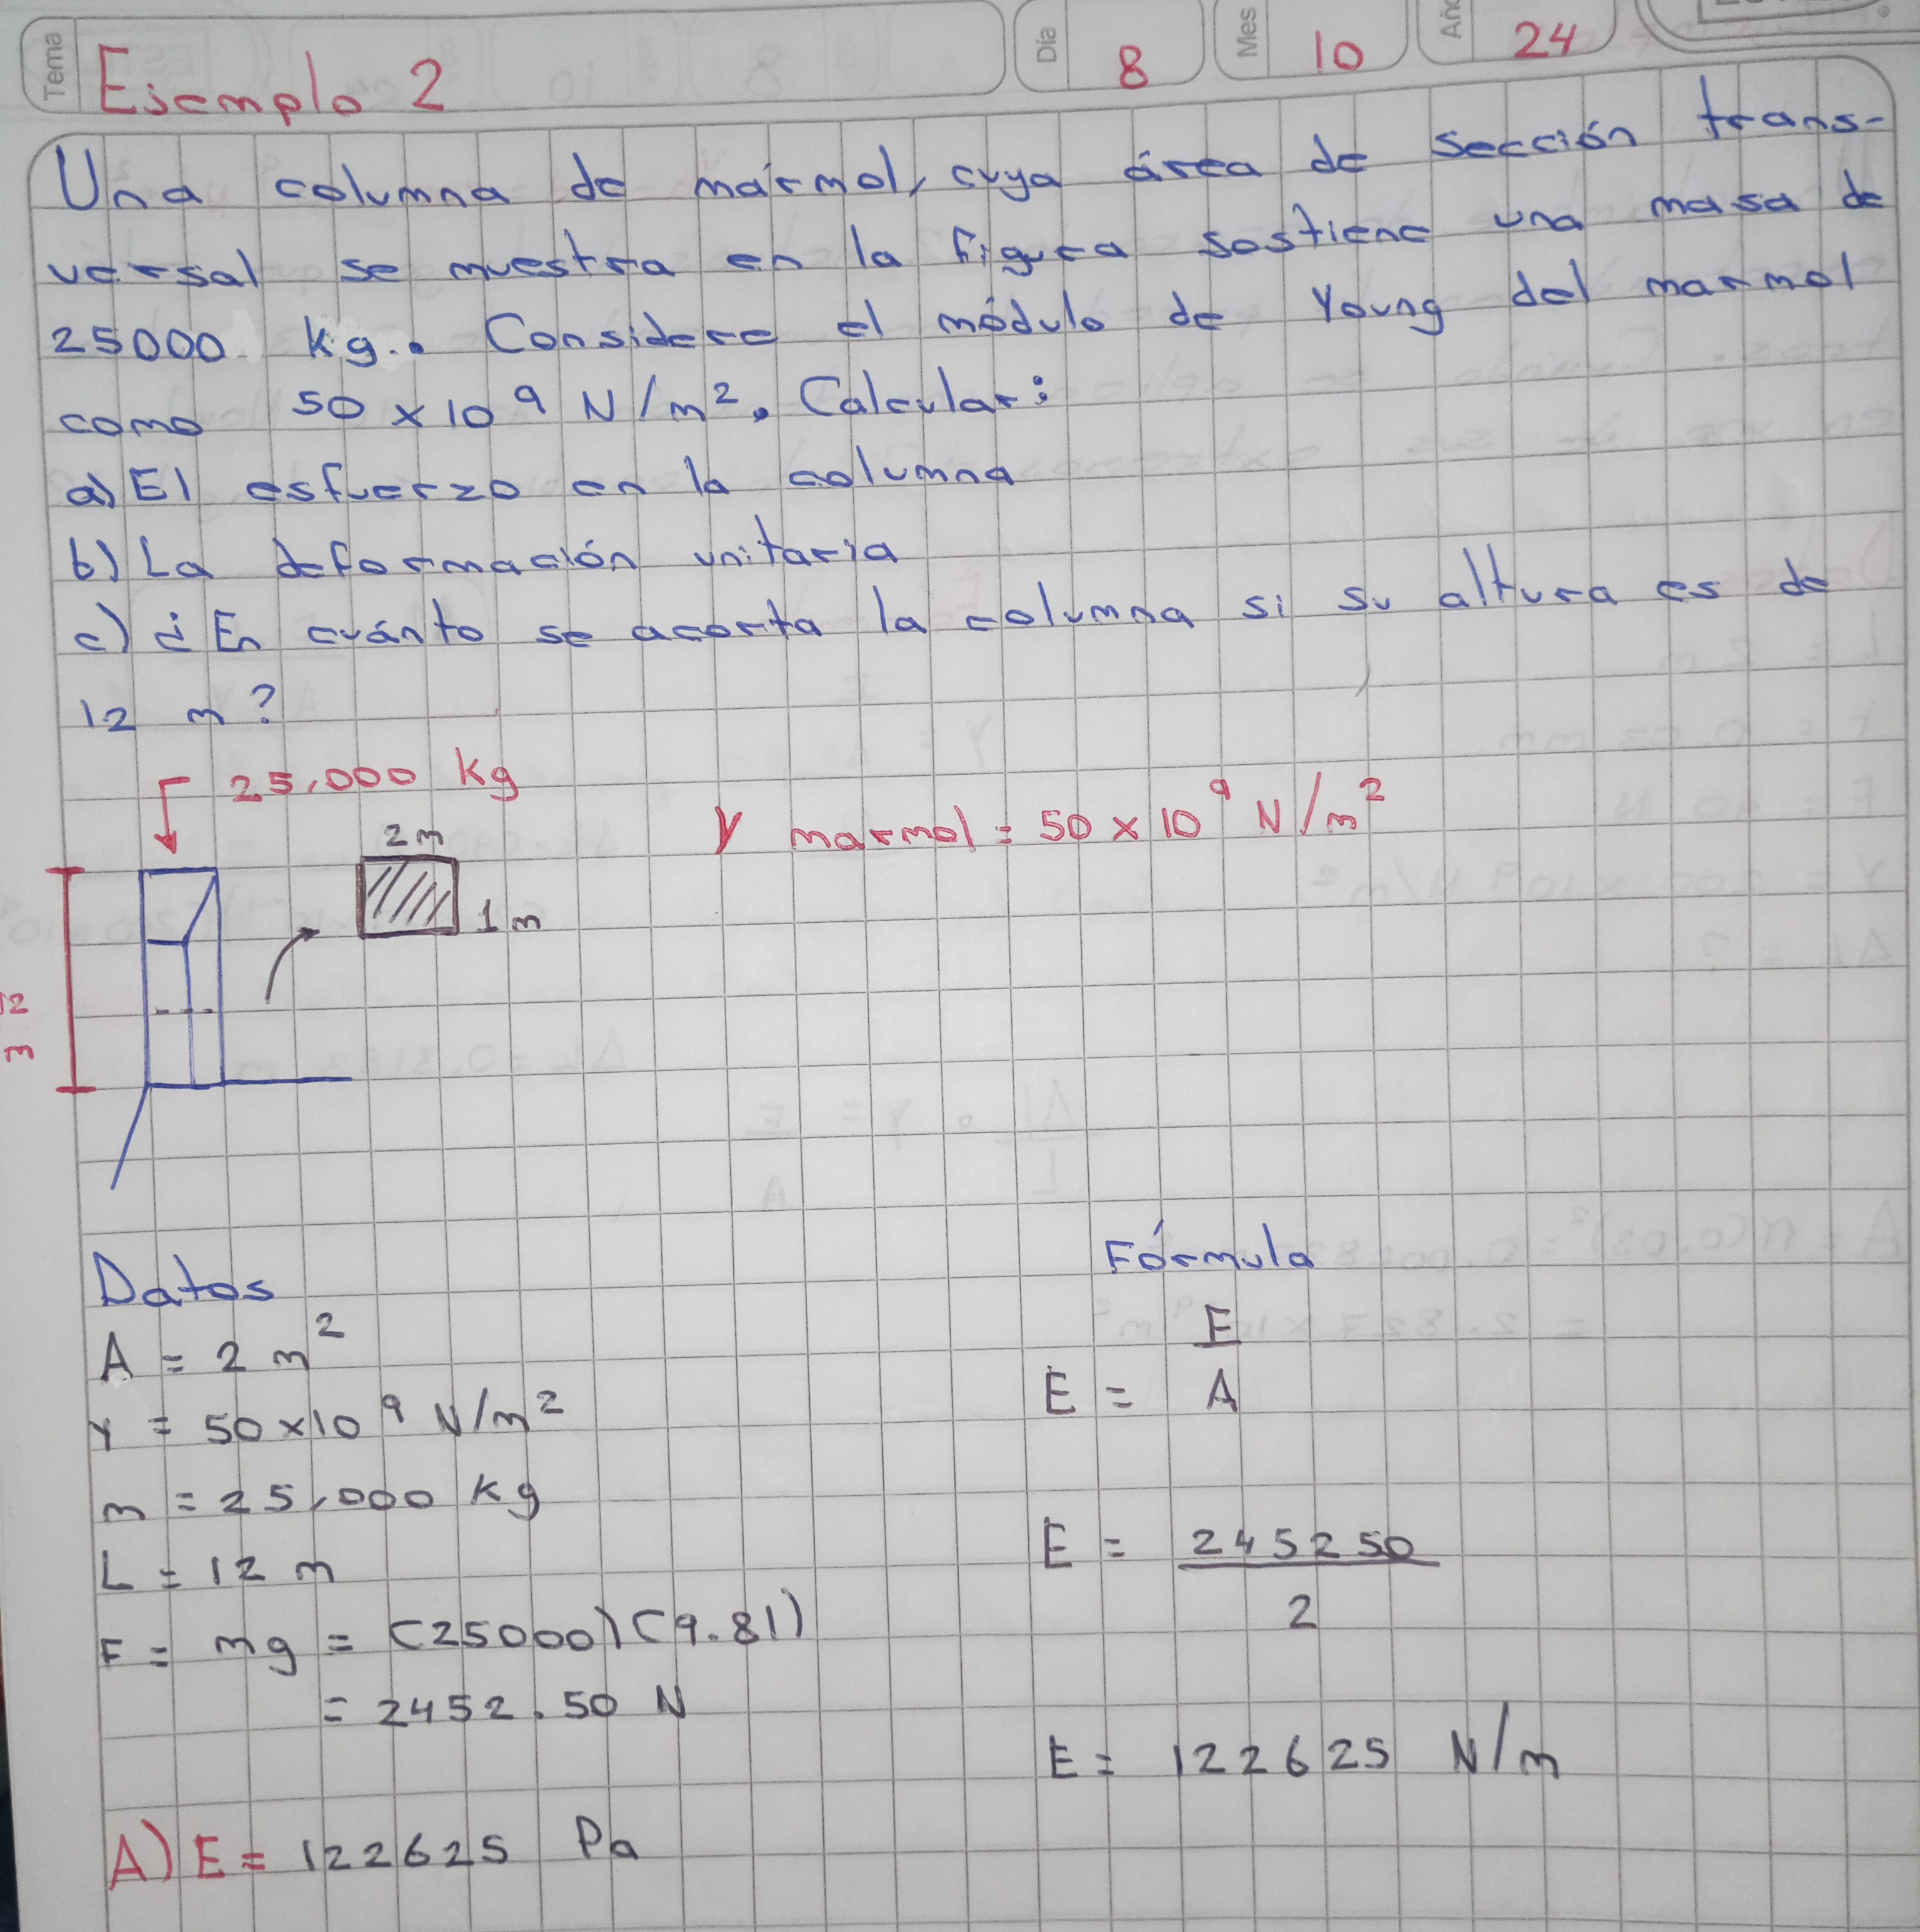 Tema
Ejemplo 2
Día 8 Mes 10 Año 24
Una columna de mármol, cuya área de sección trans-
versal se muestra en la figura sostiene una masa de
25000 Kg. Considere el módulo de Young del marmol
como 50 x 10⁹ N/m². Calcular:
a) El esfuerzo en la columna
b) La deformación unitaria
c) ¿En cuánto se acorta la columna si su altura es de
12 m?
25,000 Kg
Y marmol = 50 x 10⁹ N/m²
2m
1m
12
m
Datos
A = 2 m²
Y = 50x10⁹ N/m²
m = 25,000 Kg
L = 12 m
F = mg = (25000)(9.81)
= 2452.50 N
A) E = 122625 Pa
Fórmula
E = F
A
E = 245250
2
E = 122625 N/m